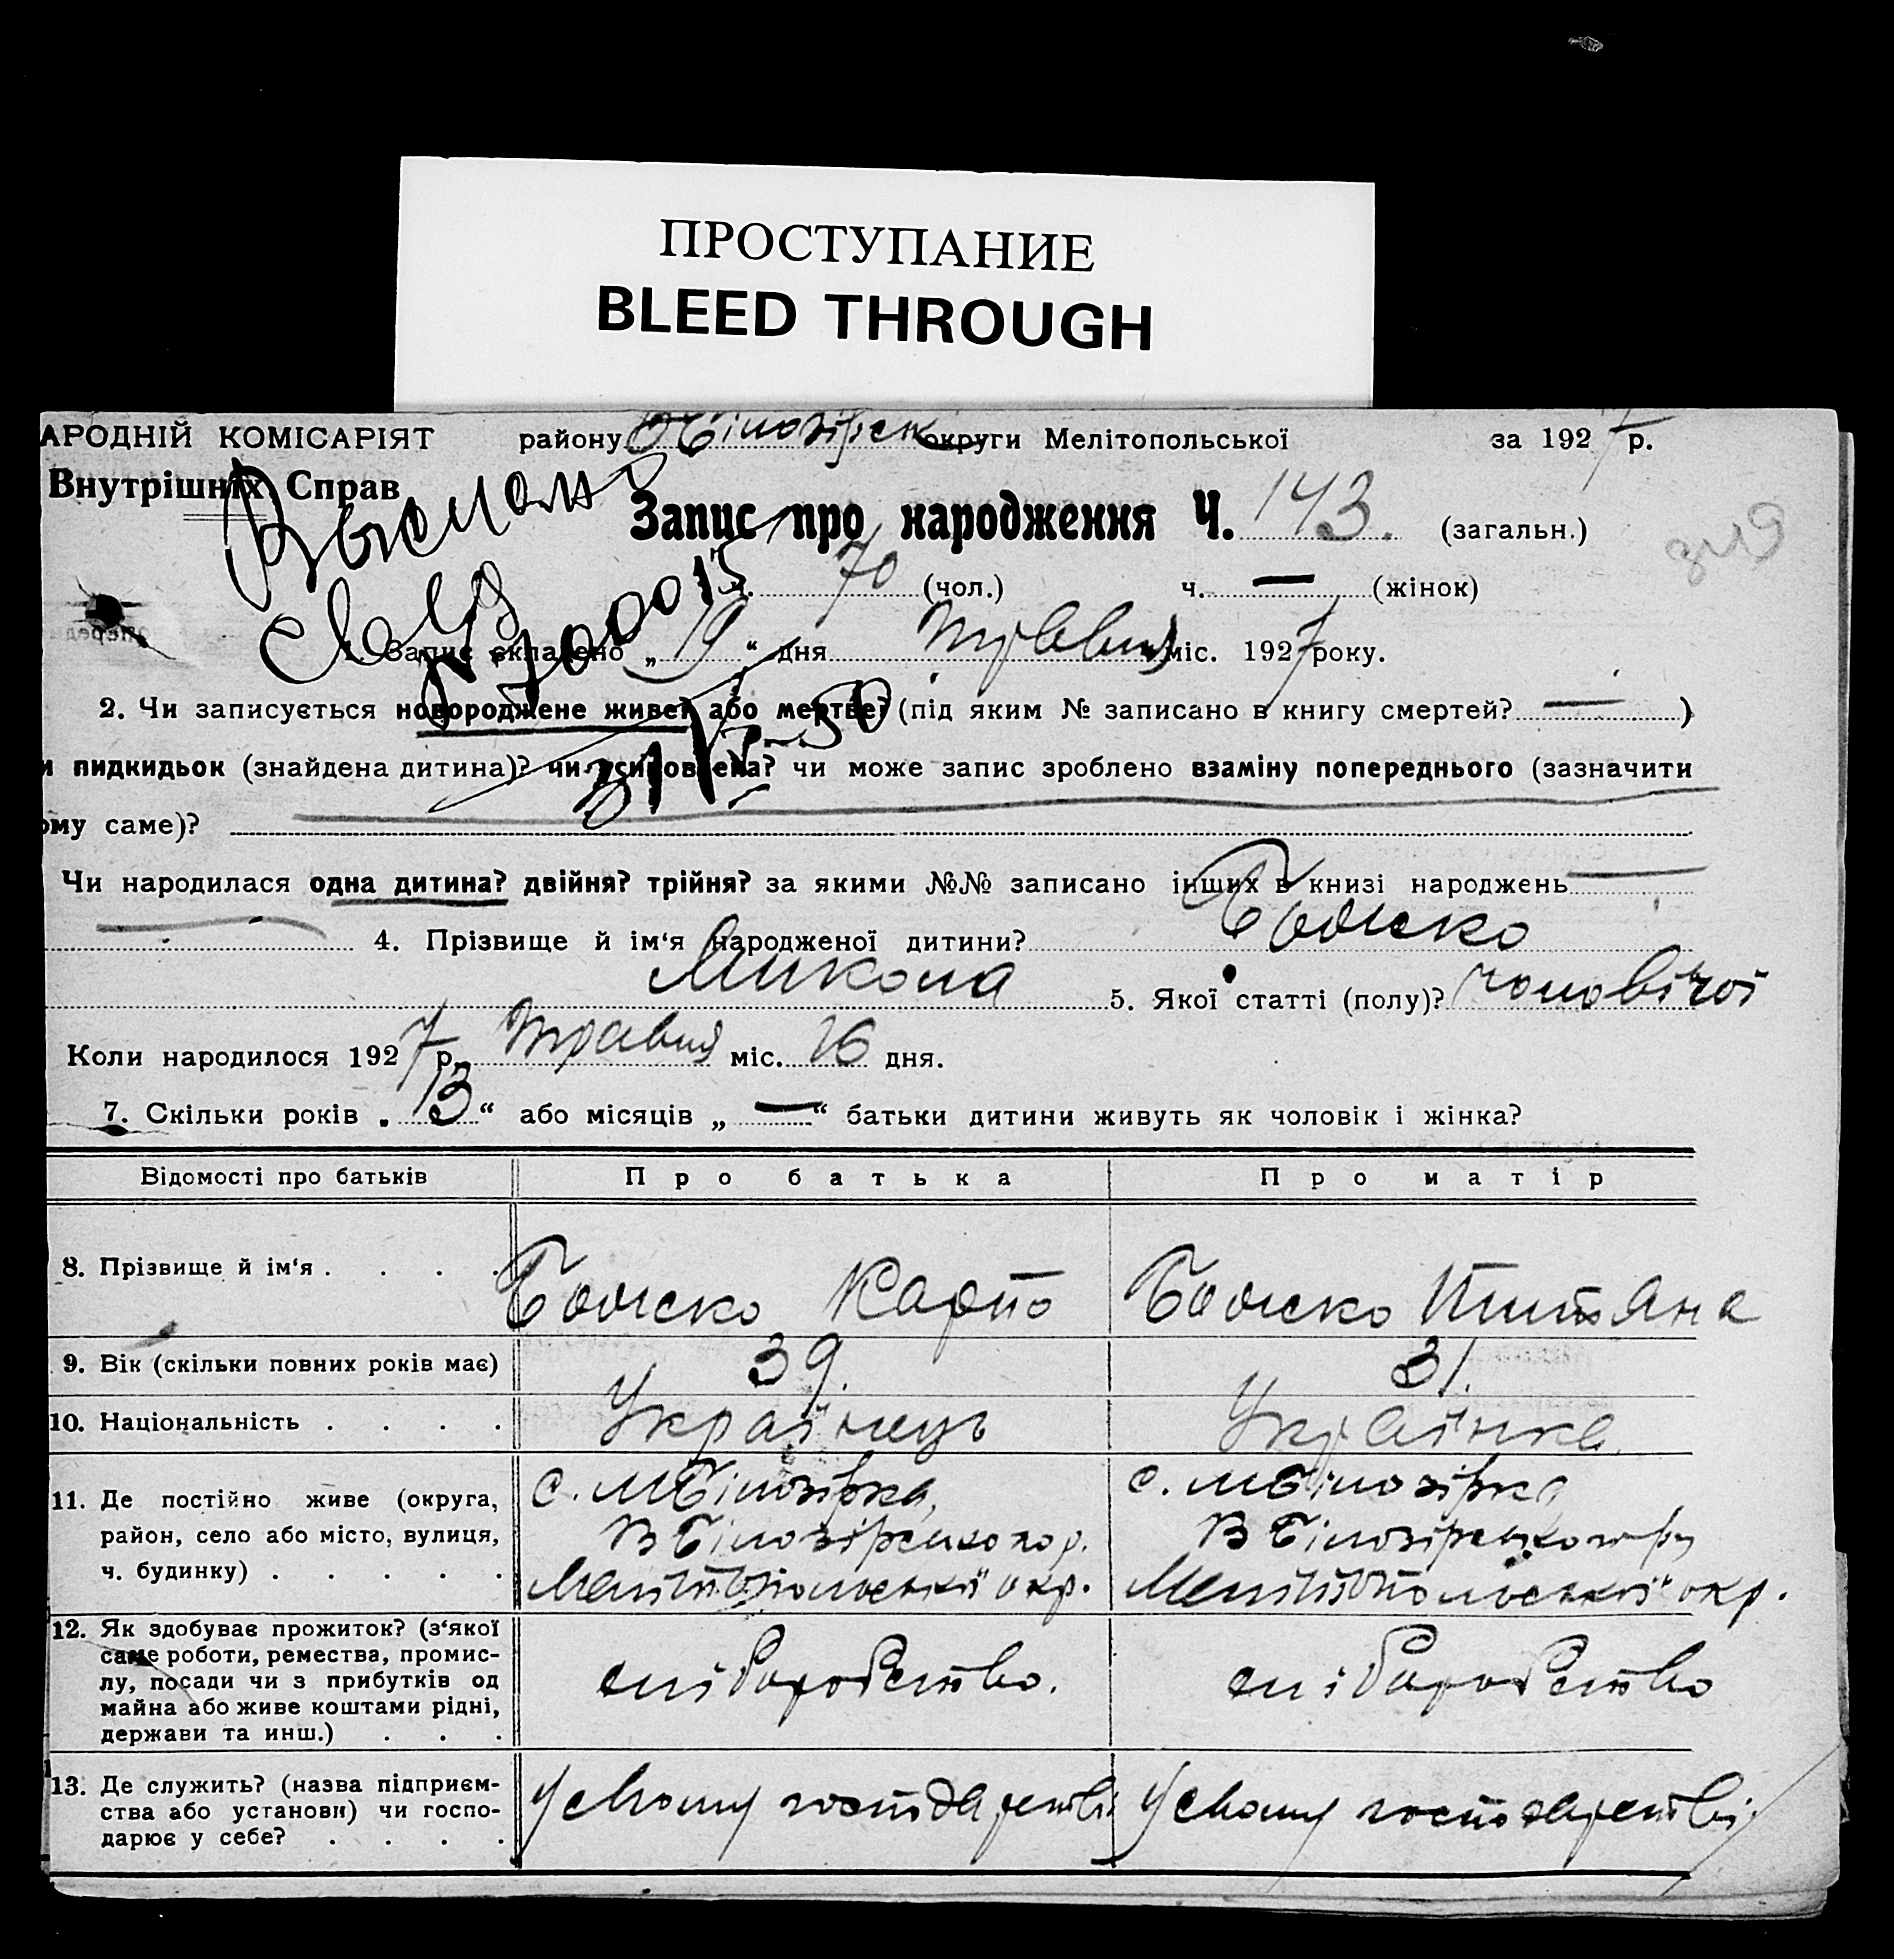 ПРОСТУПАНИЕ
BLEED THROUGH
АРОДНІЙ КОМІСАРІЯТ району В Білозірськ округи Мелітопольської за 1927 р.
Внутрішніх Справ
Запис про народження Ч. 143. (загальн.)
ч. 70 (чол.) ч. — (жінок)
1. Запис складено „ 19 “ дня травня міс. 1927 року.
2. Чи записується новороджене живе? або мертве? (під яким № записано в книгу смертей? — )
и пидкидьок (знайдена дитина)? чи усиновлена? чи може запис зроблено взаміну попереднього (зазначити
ому саме)?
Чи народилася одна дитина? двійня? трійня? за якими №№ записано інших в книзі народжень —
4. Прізвище й ім‘я народженої дитини?
Микола 5. Якої статті (полу)? чоловічої
Коли народилося 1927 р. травня міс. 16 дня.
7. Скільки років „ 13 “ або місяців „ — “ батьки дитини живуть як чоловік і жінка?
Відомості про батьків Про батька Про матір
8. Прізвище й ім‘я . . . . Карпо
9. Вік (скільки повних років має) 39. 31.
10. Національність . . . . Українець Українка
11. Де постійно живе (округа, с. МБілозірка, с. МБілозірка
район, село або місто, вулиця, В Білозірського р. В Білозірського р-ну
ч. будинку) . . . . . Мелітопольської окр. Мелітопольської окр.
12. Як здобуває прожиток? (з‘якої
саме роботи, ремества, промис-
лу, посади чи з прибутків од хліборобство. хліборобство
майна або живе коштами рідні,
держави та инш.) . . .
13. Де служить? (назва підприєм-
ства або установи) чи госпо- У свому господарстві У свому господарстві
дарює у себе? . . . .